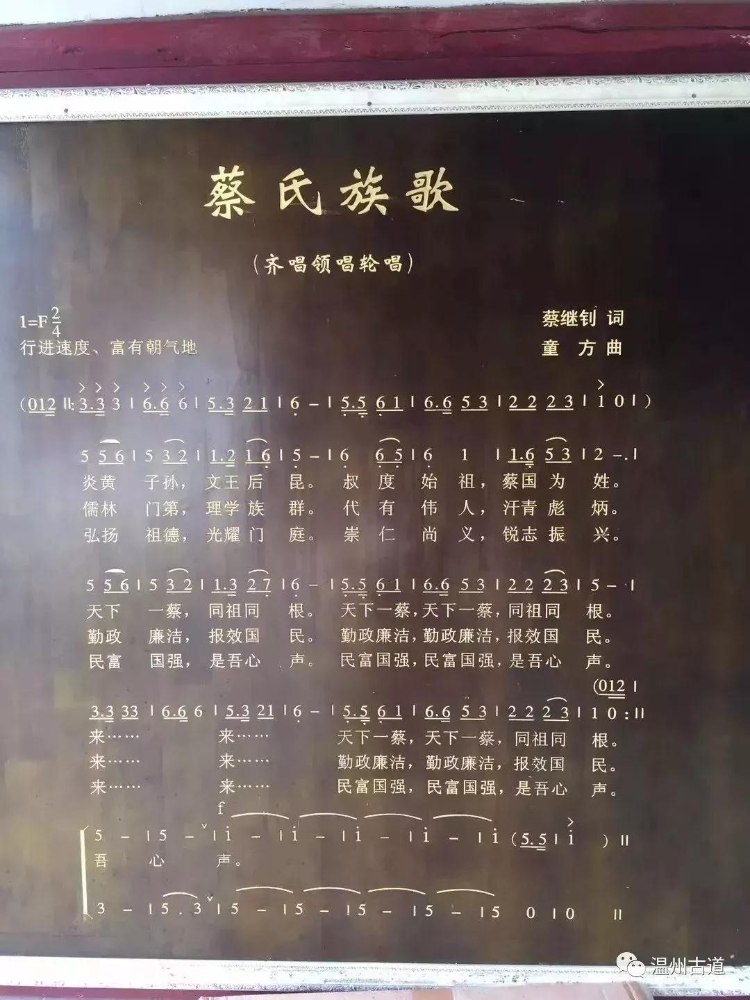 蔡氏族歌
（齐唱领唱轮唱）
1=F 2/4
蔡继钊 词
行进速度、富有朝气地
童 方 曲
(012 ‖: 3.3 3 | 6.6 6 | 5.3 2 1 | 6 - | 5.5 6 1 | 6.6 5 3 | 2 2 2 3 | 1 0 | )
5 5 6 | 5 3 2 | 1.2 1 6 | 5 - | 6 6 5 | 6 1 | 1.6 5 3 | 2 - |
炎黄 子孙，文王后 昆。 叔 度 始 祖，蔡国为 姓。
儒林 门第，理学族 群。 代 有 伟 人，汗青彪 炳。
弘扬 祖德，光耀门 庭。 崇 仁 尚 义，锐志振 兴。
5 5 6 | 5 3 2 | 1.3 2 7 | 6 - | 5.5 6 1 | 6.6 5 3 | 2 2 2 3 | 5 - |
天下 一蔡，同祖同 根。 天下一蔡，天下一蔡，同祖同 根。
勤政 廉洁，报效国 民。 勤政廉洁，勤政廉洁，报效国 民。
民富 国强，是吾心 声。 民富国强，民富国强，是吾心 声。
(012 |
3.3 33 | 6.6 6 | 5.3 21 | 6 - | 5.5 6 1 | 6.6 5 3 | 2 2 2 3 | 1 0 :‖
来…… 来…… 天下一蔡，天下一蔡，同祖同 根。
来…… 来…… 勤政廉洁，勤政廉洁，报效国 民。
来…… 来…… 民富国强，民富国强，是吾心 声。
f
5 - | 5 - ˅ | i - | i - | i - | i - | i - | i - | (5.5 5 | i ) ‖
吾 心 声。
3 - | 5 . 3 ˅ | 5 - | 5 - | 5 - | 5 - | 5 - | 5 0 | 0 ‖
温州古道